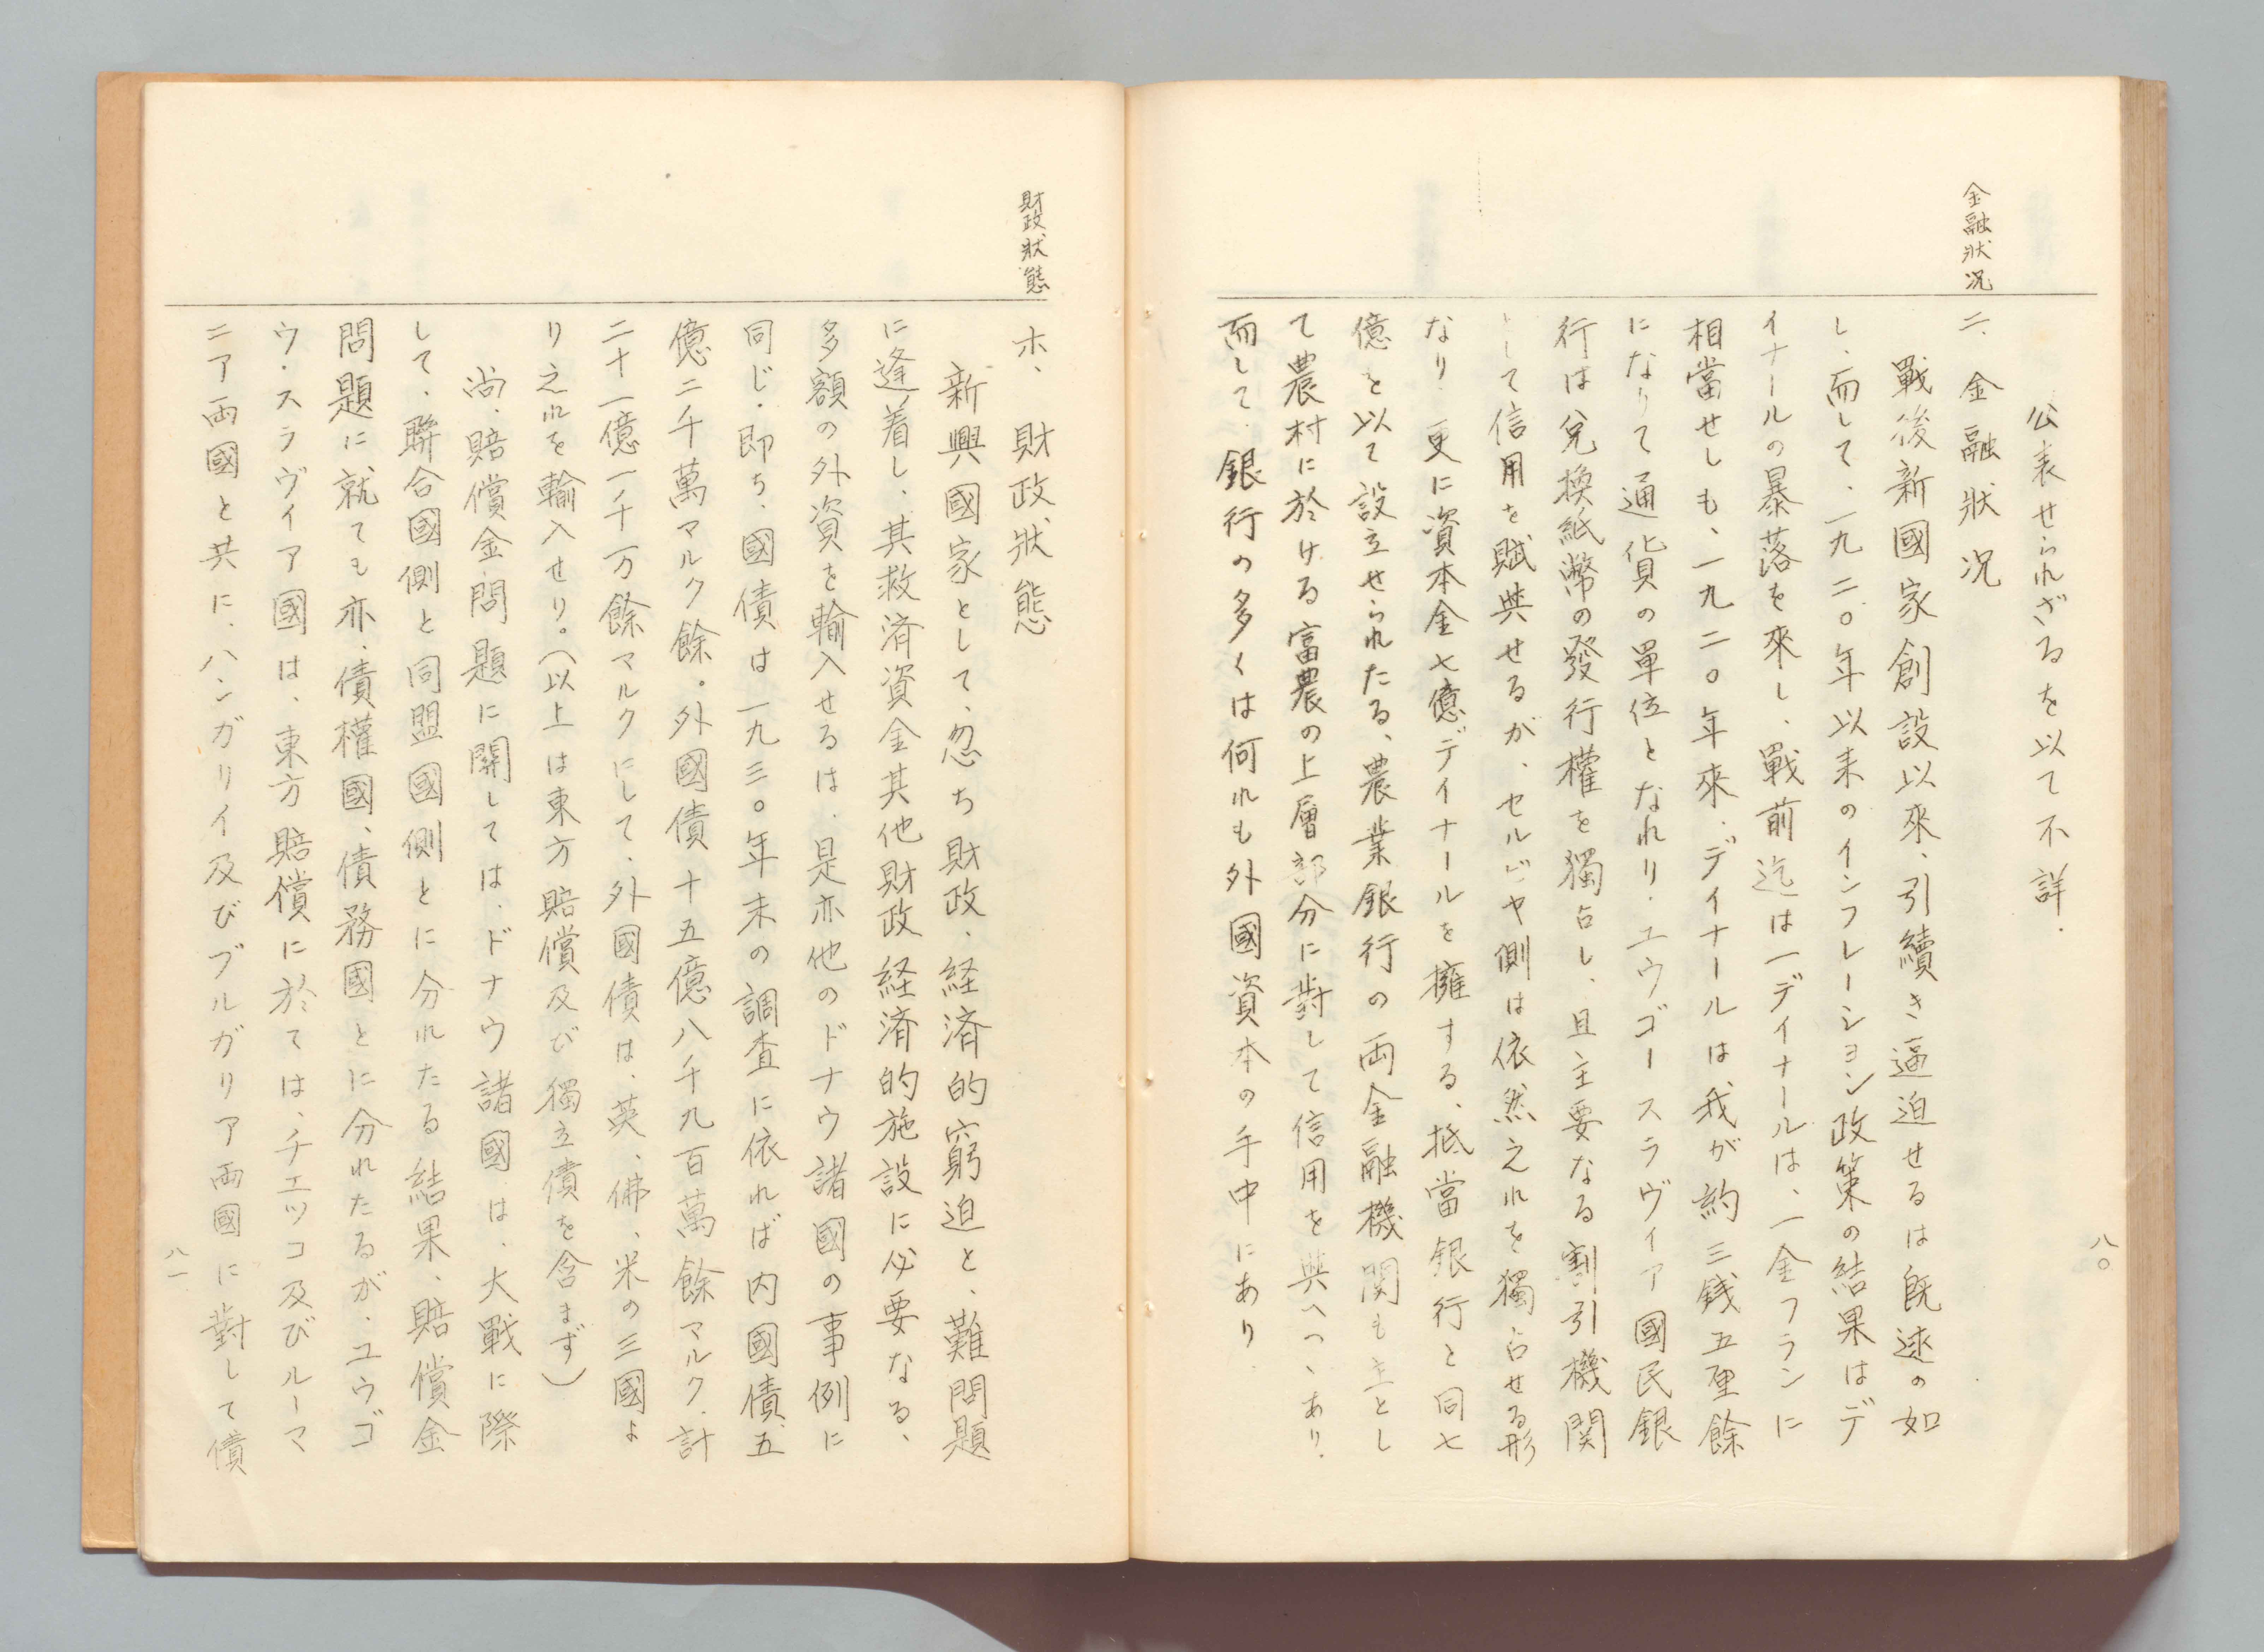 八〇
公表せられざるを以て不詳.
金融狀況
ニ、金融狀況
戰後新國家創設以來、引續き逼迫せるは旣述の如
し、而して、一九二〇年以來のインフレーション政策の結果はデ
イナールの暴落を來し、戰前迄は一デイナールは、一金フランに
相當せしも、一九二〇年來、デイナールは我が約三銭五厘餘
になりて通貨の單位となれり.ユウゴースラヴィア國民銀
行は兌換紙幣の發行權を獨占し、且主要なる割引機関
として信用を賦與せるが、セルビヤ側は依然之れを獨占せる形
なり.更に資本金七億デイナールを擁する、抵當銀行と同七
億を以て設立せられたる、農業銀行の両金融機関も主とし
て農村に於ける富農の上層部分に對して信用を與へつゝあり.
而して、銀行の多くは何れも外國資本の手中にあり.
財政狀態
ホ、財政狀態
新興國家として、忽ち財政、経済的窮迫と、難問題
に逢着し、其救済資金其他財政経済的施設に必要なる、
多額の外資を輸入せるは、是亦他のドナウ諸國の事例に
同じ.即ち、國債は一九三〇年末の調査に依れば内國債、五
億二千萬マルク餘.外國債十五億八千九百萬餘マルク.計
二十一億一千万餘マルクにして、外國債は、英、佛、米の三國よ
り之れを輸入せり。(以上は東方賠償及び獨立債を含まず)
尚、賠償金問題に關しては、ドナウ諸國は、大戰に際
して、聯合國側と同盟國側とに分れたる結果、賠償金
問題に就ても亦、債權國、債務國とに分れたるが、ユウゴ
ウ・スラヴィア國は、東方賠償に於ては、チエッコ及びルーマ
ニア両國と共に、ハンガリイ及びブルガリア両國に對して債
八一